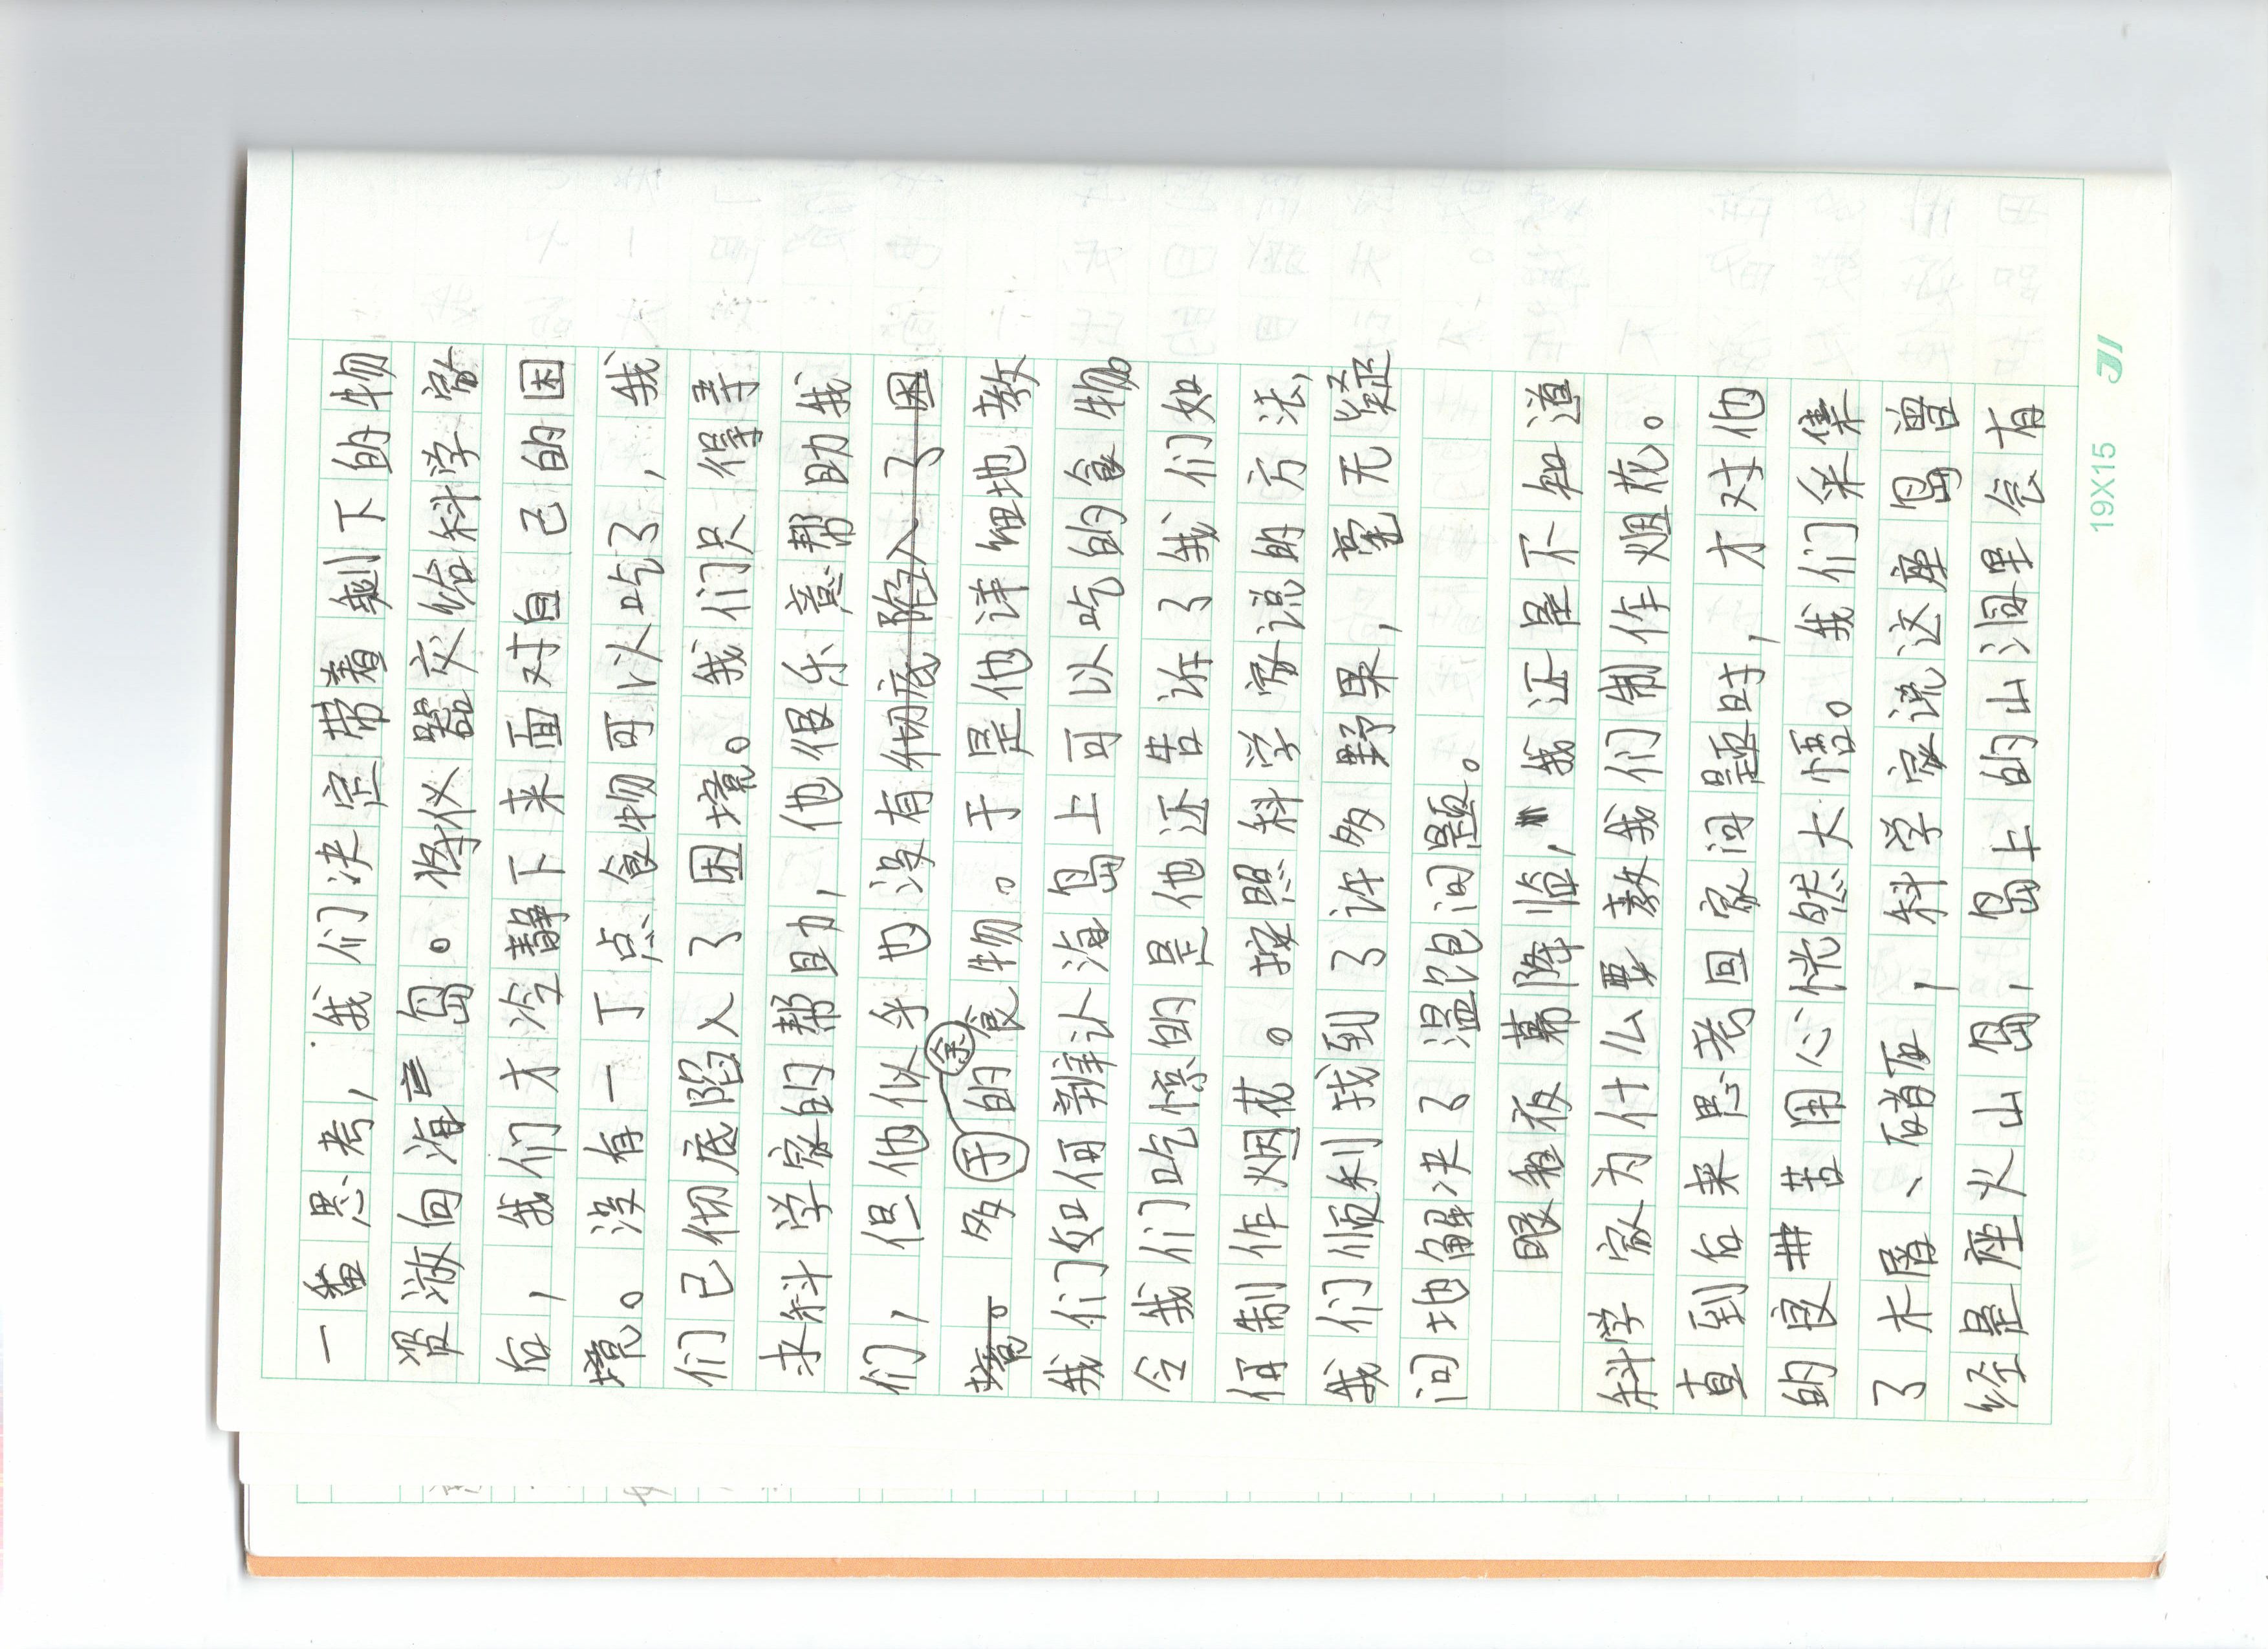 一番思考，我们决定带着剩下的物
资游向海岛。将仪器交给科学家
后，我们才冷静下来面对自己的困
境。没有一丁点食物可以吃了，我
们已彻底陷入了困境。我们只得寻
求科学家的帮助，他很乐意帮助我
们，但他似乎也没有彻底陷入了困
境。多余的食物。于是他详细地教
我们如何辨认海岛上可以吃的食物。
令我们吃惊的是他还告诉了我们如
何制作烟花。按照科学家说的方法，
我们顺利找到了许多野果，毫无疑
问地解决了温饱问题。
眼看夜幕降临，我还是不知道
科学家为什么要教我们制作烟花。
直到后来思考回家问题时，才对他
的良苦用心恍然大悟。我们采集
了木屑、硝石，科学家说这座岛曾
经是座火山岛，岛上的山洞里会有
19X15